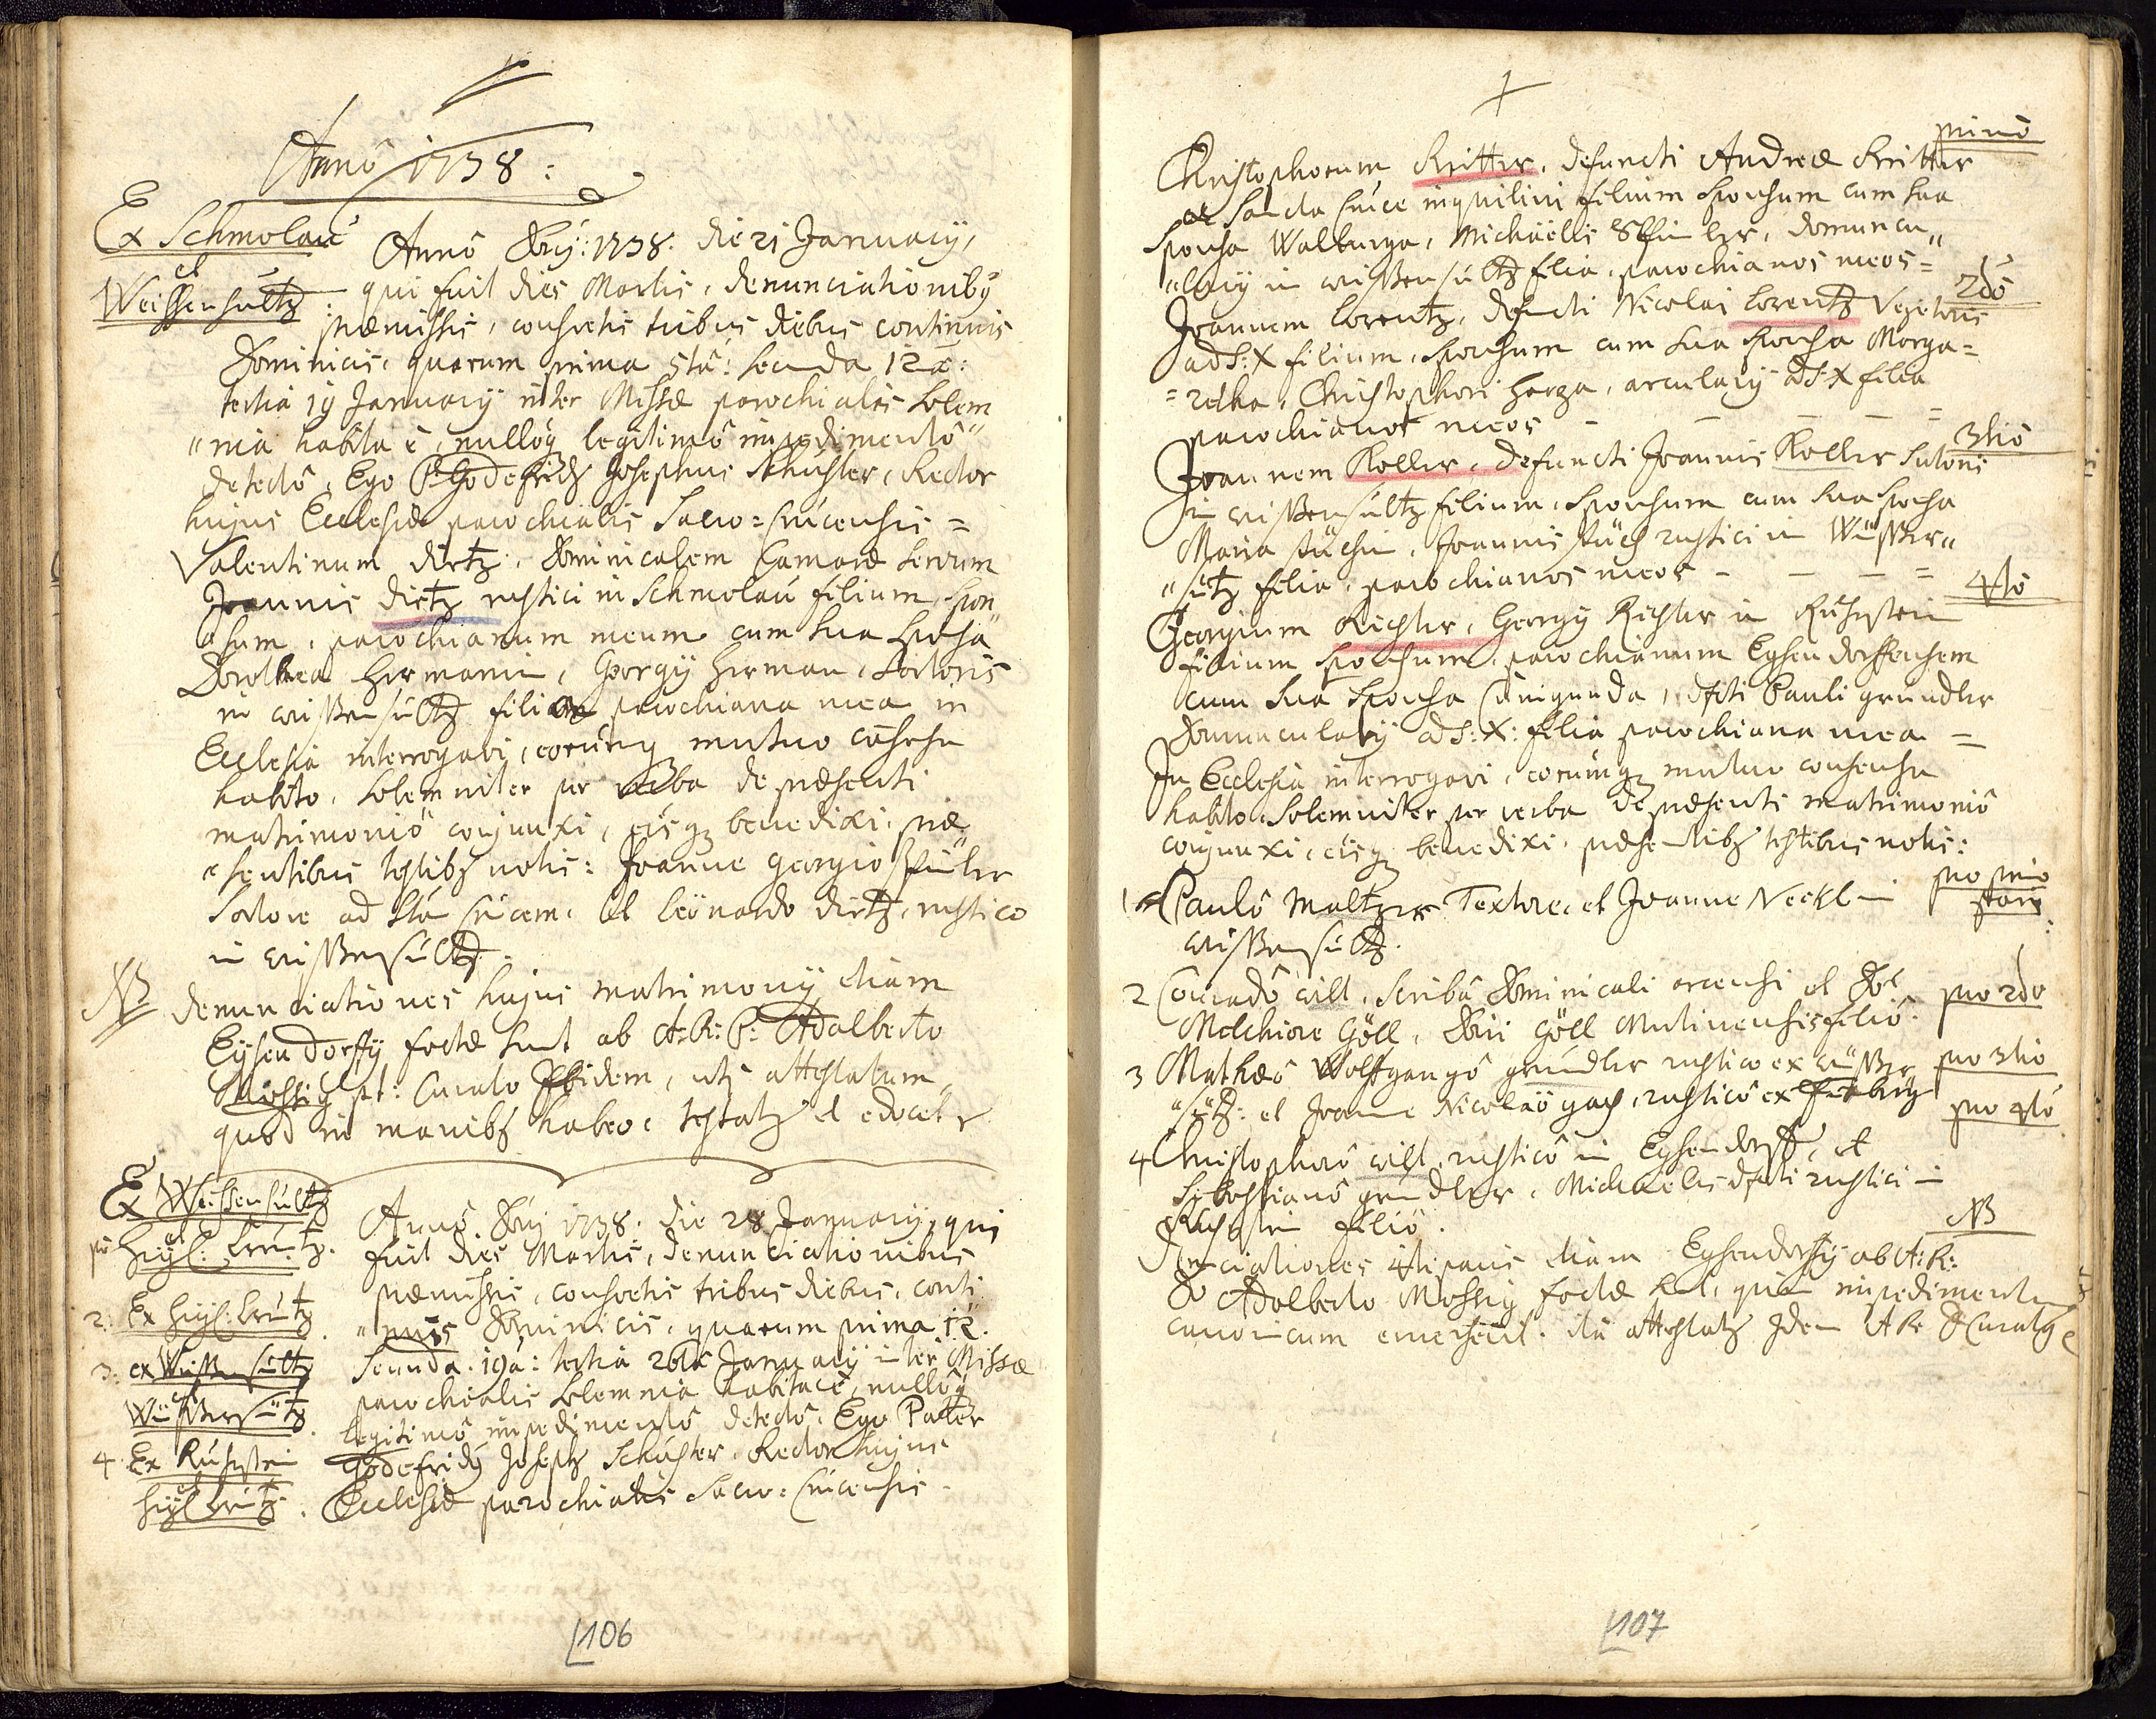 Anno 1738:
Ex Schmolau
et
Weissensultz:
Anno Dni: 1738. die 21 January,
qui fuit dies Martis, denunciationibq
praemissis, consvetis tribus diebus continuis
Dominicis, quarum prima 5ta: secunda 12a:
tertia 19 January inter Missae parochialis Solem
"nia habita ê, nulloq legitimô impedimentô"
detectô, Ego P: Godefridq Josephus Schuster, Rector
hujus Ecclesiae parochialis Sacro=Crucensis =
Valentinum dietz, Dominicalem Camerae servum
Joannis dietz rustici in Schmolau filium, spon
"sum, parochianum meum cum sua sponsa
Dorothea Hermanin, Georgÿ Herman, Sartoris
in weissensultz filia parochiana mea in
Ecclesia interrogavi, eorumq mutuo cõsensu
habito, Solemniter per verba de praesenti
matrimoniô conjunxi, eisq benedixi, prae
"sentibus testibq notis: Joanne Georgio
Sartore ad Stam Crucem, et Leonardo dietz, rustico
in weissensultz.
NB
denunciationes hujus matrimonÿ etiam
Eysendorffÿ factae sunt ab A: R: P: Adalberto
Mossig pt: Curato Ibidem, uti attestatum
quod in manibq habeo, testatq et edocet
Ex Weissensultz
et
pô Heyl: Creutz.
2. Ex Heyl: Creutz
3. ex Weissensultz
et
4. Ex Ruhstein
et
Heyl Creutz.
Annô Dni 1738: die 28 January, qui
fuit dies Martis, denunciationibus
praemissis, consvetis tribus diebus, conti
"nuis Dominicis, quarum prima 12.
Secunda. 19a: tertia 26ta January inter Missae
parochialis Solemnia habitae ê, nulloq
legitimô impedimentô detectô, Ego Pater
Godefridq Josephq Schuster, Rector hujus
Ecclesiae parochialis Sacro=Crucensis.
106
primô
Christophorum Ritter, defuncti Andreae Ritter
ex Sancta Cruce inquilini filium sponsum cum sua
sponsa Walburga, Michaëlis, domuncu"
"larÿ in weissensultz filia, parochianos meos=
2dô
Joannem Lorentz, defuncti Nicolai Lorentz Vezitoris
ad S: X filium, sponsum cum sua sponsa Marga=
=retha, Christophori Harza, arcularÿ ad S: X filia
parochianos meos - - - - =
3tiô
Joannem Koller, defuncti Joannis Koller Sutoris
in weissensultz filium, sponsum cum sua sponsa
Maria, Joannis rustici in Wusser"
"sutz filia, parochianos meos - - - =
4tô
Georgium Richter, Georgÿ Richter in Ruhstein
filium sponsum, parochianum Eysendorffensem
cum sua sponsa Cunigunda, dfcti Pauli grundler
Domuncularÿ ad S: X: filia parochiana mea =
In Ecclesia interrogavi, eorumq mutuo consensu
habito, Solemniter per verba de praesenti matrimoniô
conjunxi, eisq benedixi, praesentibq testibus notis:
1 Paulô Maltzer Textore, et Joanne Neckl in
weissensultz.
pro primo
pari:
2 Conradô will, scribâ Dominicali arcensi et
Melchiore Göll, Dni Göll Mulinensis filiô.
pro 2do
3 Mathaeô Wolfgangô grundler rustico ex wusser
"sutz: et Joanne Nicolaô, rusticô ex
pro 3tio
4 Christophorô will, rusticô in Eysendorff, et
Sebastianô grundler, Michaelis dfcti rustici in
Ruhstein filiô.
pro 4tô
NB
Denunciationes 4ti paris etiam Eysendorffÿ ab A: R:
D Adalberto Mossig factae sunt, quin impedimentum
canonicum emerserit. ita attestatq Idem A R D Curatq
107